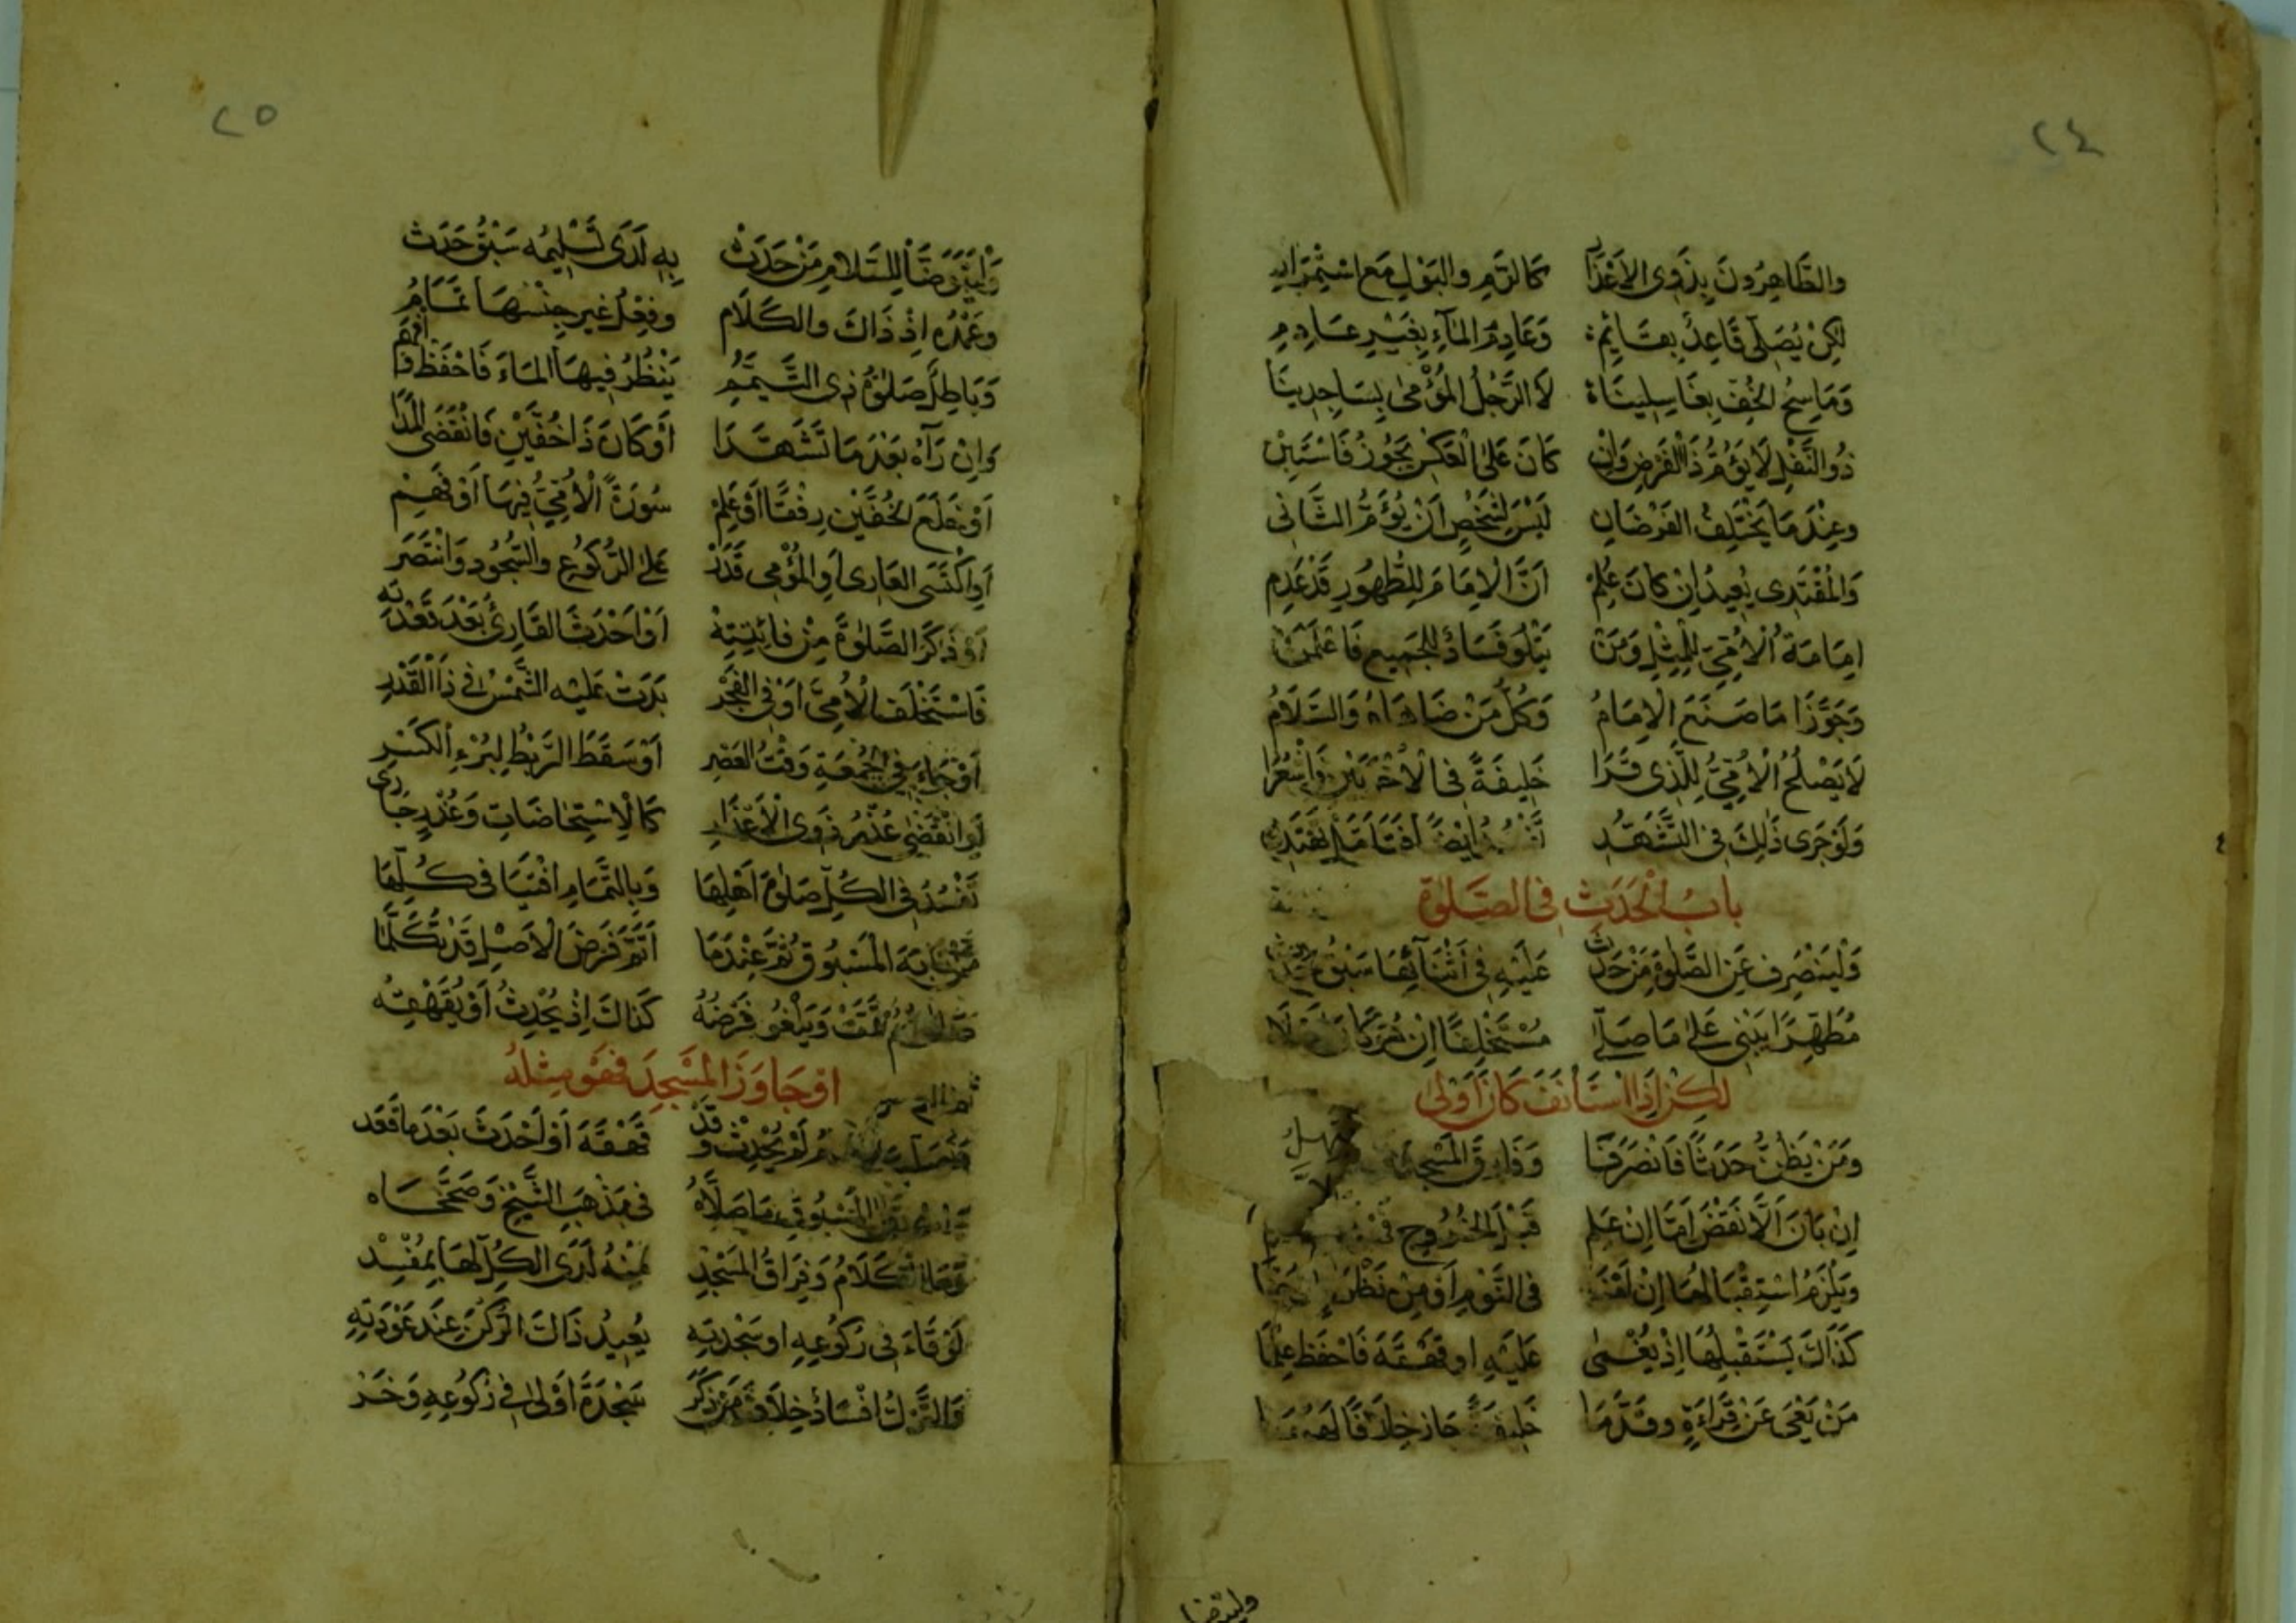 ٢٤
والطَّاهِرُونَ بِذَوِى الاَعْذَارِ كَالدَّمِ والبَوْلِ مَع اسْتِمْرَارِ
لكِنْ يُصَلِّى قَاعِدٌ بِقَائِمِ وَعَادِمُ المَآءِ بِغَيْرِ عَادِمِ
وَمَاسِحُ الخُفِّ بِغَاسِلِينَا لاَ الرَّجُلُ المُؤْمِى بِسَاجِدِينَا
ذُو النَّفْلِ لَا يَؤُمُّ ذَا الْفَرْضِ وَاِنْ كَانَ عَلَى الْعَكْسِ يَجُوزُ فَاسْتَبِنْ
وعِنْدَمَا يَخْتَلِفُ الفَرْضَانِ لَيْسَ لِشَخْصٍ اَنْ يَؤُمَّ الثَّانِى
وَالمُقْتَدِى يُعِيدُ اِنْ كَانَ عَلِمْ اَنَّ الْاِمَامَ لِلطَّهُورِ قَدْ عَدِم
اِمَامَةُ الْاُمِّىِّ لِلْمِثْلِ وَمَنْ يَتْلُو فَسَادٌ لِلْجَمِيعِ فَاعْلَمَنْ
وَجَوَّزَا مَا صَنَعَ الْاِمَامُ وَكُلُّ مَنْ ضَاهَاهُ وَالسَّلَامُ
لَا يَصْلُحُ الْاُمِّىُّ لِلَّذِى قَرَا خَلِيفَةً فى الْاُخْرَيَيْنِ فَاشْعُرَا
وَلَوْ جَرَى ذَلِكَ فى التَّشَهُّدِ تَفْسُدُ اَيْضًا
بابُ الْحَدَثِ فى الصَّلوٰةِ
وَلْيَنْصَرِف عَنِ الصَّلوٰةِ مَنْ حَدَثْ عَلَيْهِ فى اَثْنَآئِهَا سَبْقُ حَدَثْ
مُطَهِّرًا يَبْنِى عَلَى مَا صَلَّى مُسْتَخْلِفًا اِنْ
لكِنْ اِذَا اسْتَأْنَفَ كَانَ اَوْلَى
ومَنْ يَظُنُّ حَدَثًا فَانْصَرَفَا وَفَارَقَ المَسْجِدَ
اِنْ بَانَ اَلَّا نَقْضَ اَمَّا اِنْ عَلِم قَبْلَ الخُرُوجِ
وَيَلْزَمُ اسْتِقْبَالُهَا اِنْ فى النَّوْمِ اَوْ مِنْ نَظَرٍ
كَذَاكَ يَسْتَقْبِلُهَا اِذْ يُغْمَى عَلَيْهِ او قَهْقَهَ فَاحْفَظ عِلْمَا
مَنْ يَعْىَ عَنْ قِرَاءَةٍ وقَدَّمَا خَلِيفَةً جاز خِلَافًا لَهُمَا
وليتوضا
٢٥
وَلْيَتَوَضَّأْ لِلسَّلَامِ مَنْ حَدَثْ بِهِ لَدَى تَسْلِيمِه سَبْقُ حَدَث
وعَمْدُه اِذْ ذَاكَ والكَلَام وفِعْلُ غير جِنْسِهَا تَمَامُ
وَبَاطِلٌ صَلوٰةُ ذِى التَّيَمُّمِ يَنْظُرُ فِيهَا المَاءَ فَاحْفَظْ وَافْهَمِ
وَاِنْ رَآهُ بَعْدَ مَا تَشَهَّدَا أَوْ كَانَ ذَا خُفَّيْنِ فَانْقَضَى المَدَا
اَوْ خَلَعَ الخُفَّيْنِ رِفْقًا اَوْ عَلِمْ سُورَةً الْاُمِّىُّ فِيهَا اَوْ فَهِمْ
اَوِ اكْتَسَى العَارِى اَوِ المُؤْمِى قَدَرْ عَلَى الرُّكُوعِ والسُّجُودِ وَانْتَصَرَ
اَوْ ذَكَرَ الصَّلوٰةَ مِنْ فَائِتَتِهْ اَوْ اَحْدَثَ القَارِئُ بَعْدَ قَعْدَتِه
فَاسْتَخْلَفَ الْاُمِّىَّ اَوْ فى الفَجْرِ بَدَتْ عَلَيْهِ الشَّمْسُ فى ذَا الْقَدْرِ
اَوْ جَاءَ فى الْجُمْعَةِ وَقْتُ العَصْرِ اَوْ سَقَطَ الرَّبْطُ لِبُرْءِ الْكَسْرِ
اَوِ انْقَضَى عُذْرُ ذَوِى الْاَعْذَارِ كَالْاِسْتِحَاضَاتِ وَعُذْرٍ جَارِى
تَفْسُدُ فى الْكُلِّ صَلوٰةُ اَهْلِهَا وَبِالتَّمَامِ اَفْتَيَا فى كُلِّهَا
الْمَسْبُوقِ ثُمَّ عِنْدَمَا اَتَمَّ فَرْضَ الْاَصْلِ قَدْ تَكَلَّمَا
تَمَّتْ وَيَلْغُو فَرْضُهُ كَذَاكَ اِذْ يُحْدِثُ اَوْ يُقَهْقِهُ
اوْ جَاوَزَ الْمَسْجِدَ فَهْوَ مِثْلُهُ
لَمْ يُحْدِثْ وَقَدْ قَهْقَهَ اَوْ اَحْدَثَ بَعْدَ مَا قَعَد
الْمَسْبُوقِ مَا صَلَّاهُ فى مَذْهَبِ الشَّيْخِ وَصَحَّحَاه
كَلَامُ وَفِرَاقُ الْمَسْجِدِ مِنْهُ لَدَى الْكُلِّ لَهَا بِمُفْسِدْ
لَوْ قَاءَ فى رُكُوعِهِ او سَجْدَتِهِ يُعِيدُ ذَاكَ الرُّكْنَ عِنْدَ عَوْدَتِهِ
خِلَافُ مَنْ ذَكَرَ سَجْدَةً اَوْلَى فى رُكُوعِهِ وَخَرَّ